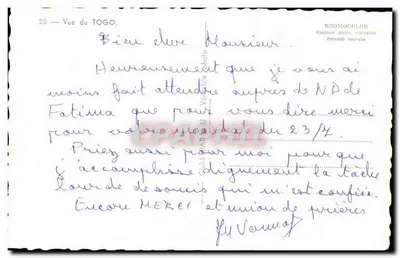 20 — Vue du TOGO.
BROMOCOLOR
Bien cher Monsieur.
Heureusement que je vous ai
moins fait attendre auprès de ND de
Fatima que pour vous dire merci
pour votre mandat du 23/7.
Priez aussi pour moi pour que
j'accomplisse dignement la tache
lourde de soucis qui m'est confiée.
Encore MERCI et union de prières
Véritable photo